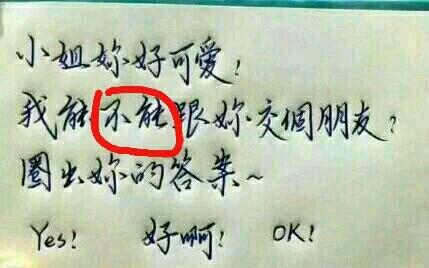 小姐妳好可愛!
我能不能跟妳交個朋友?
圈出妳的答案~
Yes! 好啊! OK!